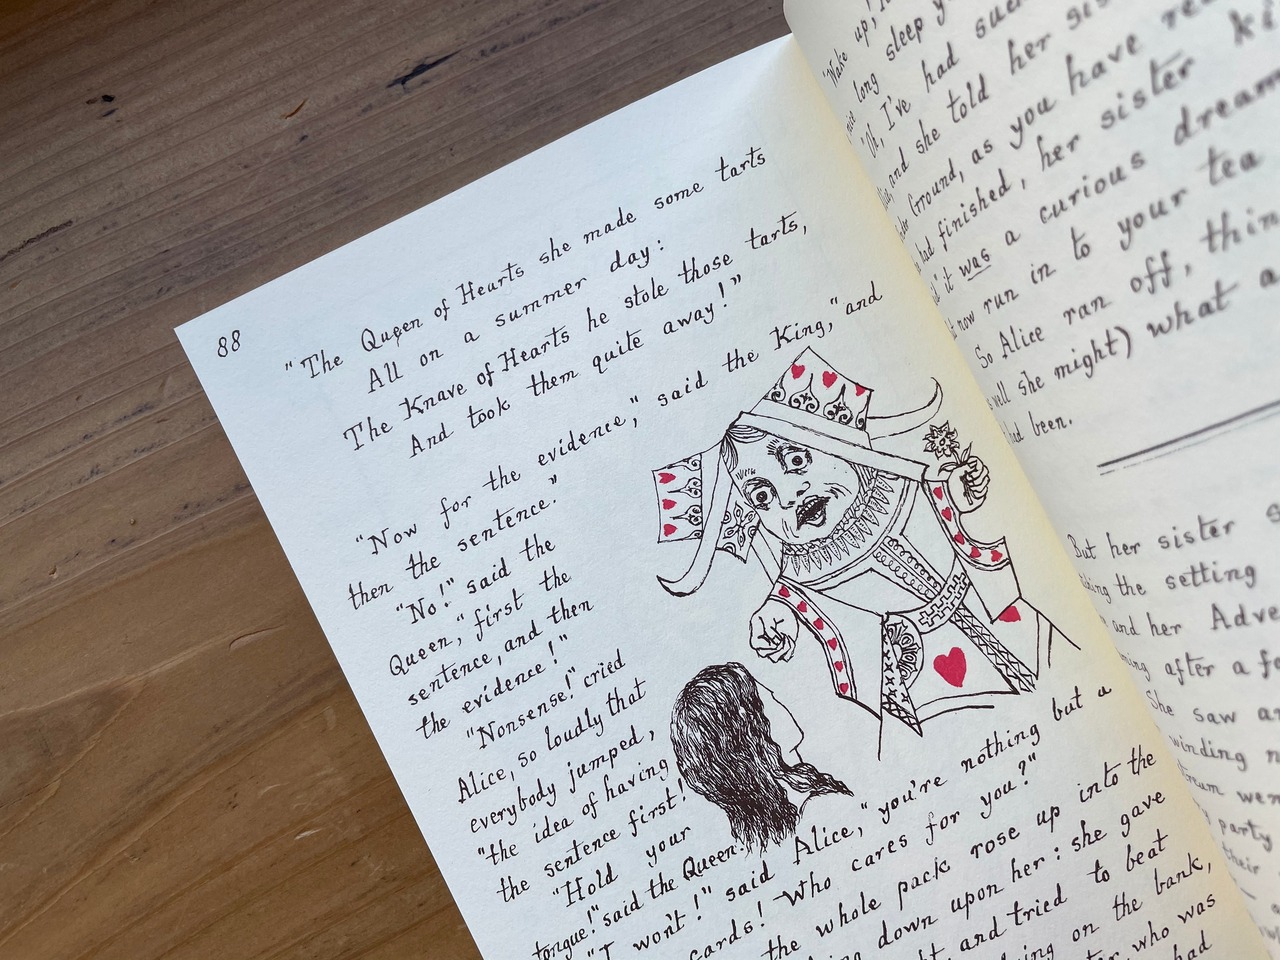 88
"The Queen of Hearts she made some tarts
All on a summer day:
The Knave of Hearts he stole those tarts,
And took them quite away!"
"Now for the evidence," said the King, "and
then the sentence."
"No!" said the
Queen, "first the
sentence, and then
the evidence!"
"Nonsense!" cried
Alice, so loudly that
everybody jumped,
"the idea of having
the sentence first!
"Hold your
tongue!" said the Queen.
"I won't!" said Alice, "you're nothing but a
cards! Who cares for you?"
the whole pack rose up into the
down upon her: she gave
and tried to beat
on the bank,
who was
had
"Wake up,
nice long sleep
"Oh, I've had such
and she told her sis
Ground, as you have rea
had finished, her sister ki
it was a curious dream
now run in to your tea
So Alice ran off, thin
well she might) what a
had been.
But her sister s
the setting
and her Adve
after a fa
She saw an
winding
stream wen
party
their